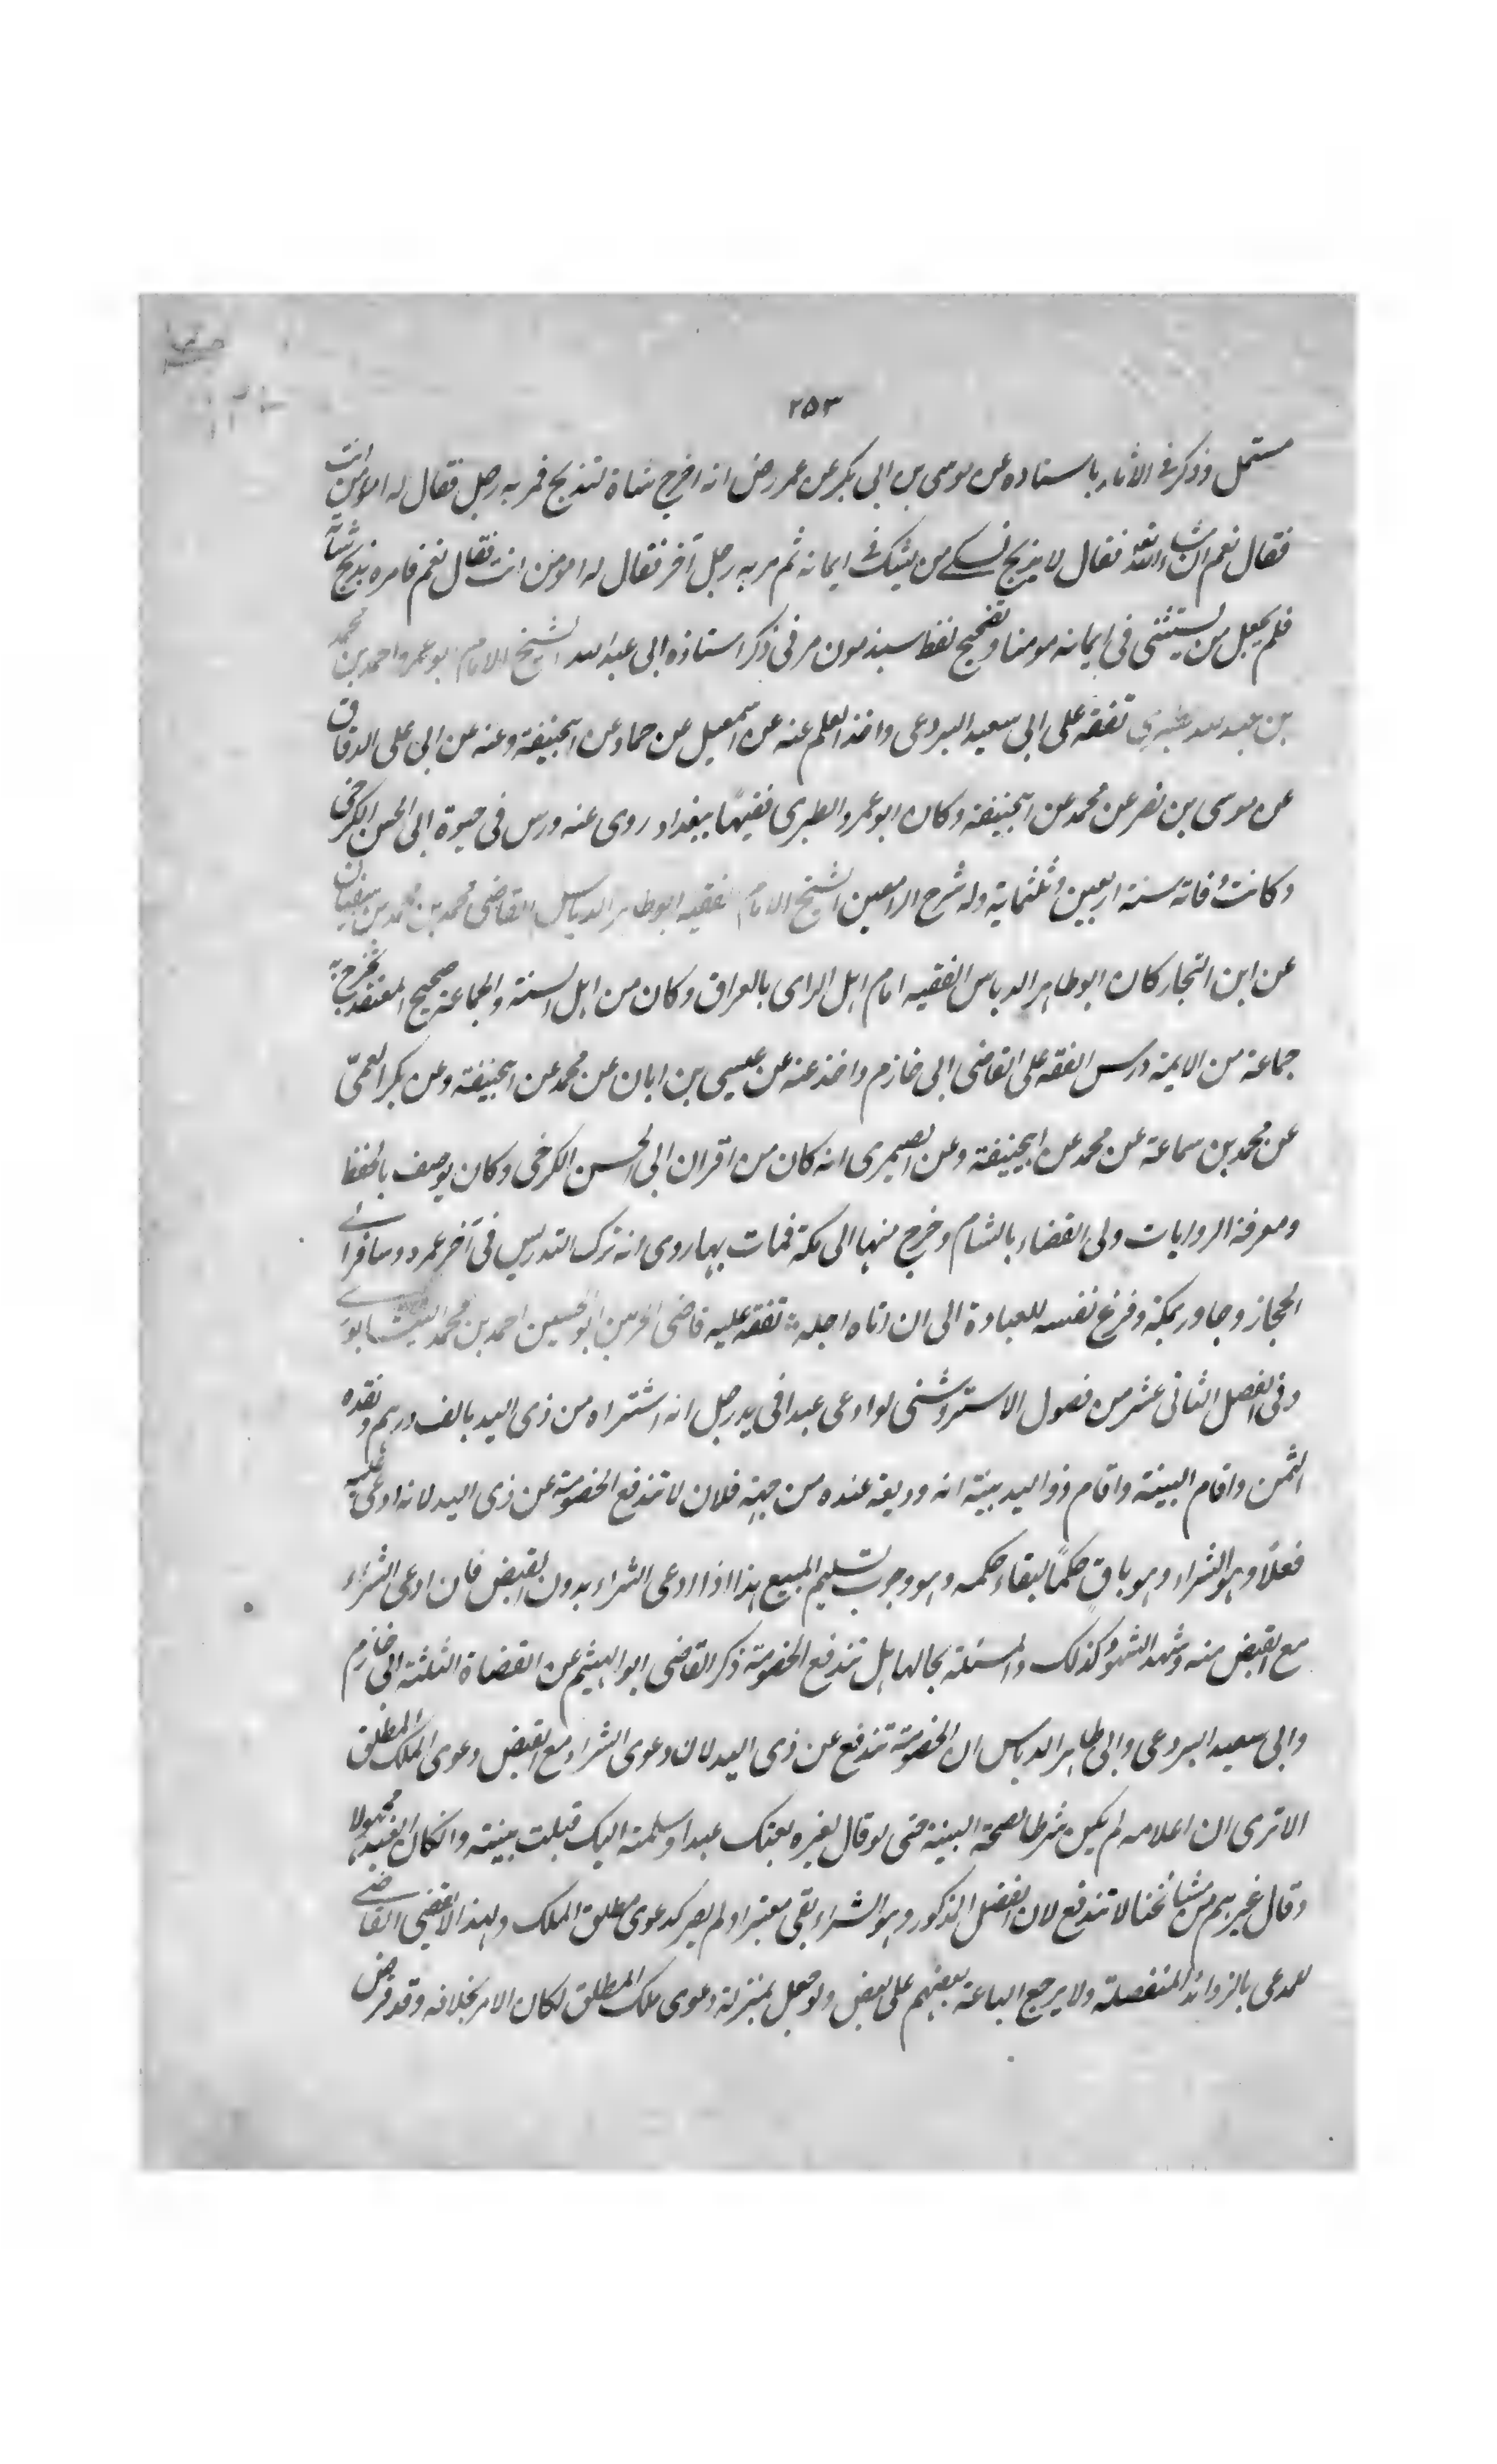 ٢٥٣
مستمل وذكر فى الآثار باسناده عن موسى بن ابى بكر عن عمر رض انه اخرج شاة لتذبح فمر به رجل فقال له امؤمن انت
فقال نعم ان شاء الله فقال لا يذبح نسكى من يشك فى ايمانه ثم مر به رجل آخر فقال له امومن انت فقال نعم فامره بذبح شاته
فلم يجعل من يستثنى فى ايمانه مومنا وتصحيح لفظ سبذمون مر فى ذكر استاذه ابى عبد الله الشيخ الامام ابو عمرو احمد بن محمد
بن عبد الله الطبرى تفقه على ابى سعيد البردعى واخذ العلم عنه عن اسمعيل عن حماد عن ابيحنيفة وعنه عن ابى على الدقاق
عن موسى بن نصر عن محمد عن ابيحنيفة وكان ابو عمرو الطبرى فقيها ببغداد روى عنه ودرس فى حيوة ابى الحسن الكرخى
وكانت وفاته سنة اربعين وثلثماية وله شرح الجامعين الشيخ الامام الفقيه ابو طاهر الدباس القاضى محمد بن محمد بن سفيان
عن ابن النجار كان ابو طاهر الدباس الفقيه امام اهل الراى بالعراق وكان من اهل السنة والجماعة صحيح المعتقد تخرج به
جماعة من الايمة درس الفقه على القاضى ابى خازم واخذ عنه عن عيسى بن ابان عن محمد عن ابيحنيفة وعن بكر العمىّ
عن محمد بن سماعة عن محمد عن ابيحنيفة وعن الصيمرى انه كان من اقران ابى الحسن الكرخى وكان يوصف بالحفظ
ومعرفة الروايات ولى القضاء بالشام وخرج منها الى مكة فمات بها روى انه ترك التدريس فى آخر عمره وسافر الى
الحجاز وجاور بمكة وفرغ نفسه للعبادة الى ان اتاه اجله تفقه عليه قاضى الحرمين ابو الحسين احمد بن محمد النيشابورى
وفى الفصل الثانى عشر من فصول الاستروشنى لو ادعى عبدا فى يد رجل انه اشتراه من ذى اليد بالف درهم ونقده
الثمن واقام البينة واقام ذو اليد بينة انه وديعة عنده من جهة فلان لا تندفع الخصومة عن ذى اليد لانه ادعى عليه
فعلا وهو الشراء وهو باق حكما لبقاء حكمه وهو وجوب تسليم المبيع هذا اذا ادعى الشراء بدون القبض فان ادعى الشراء
مع القبض منه وشهد الشهود كذلك والمسئلة بحالها هل تندفع الخصومة ذكر القاضى ابو الهيثم عن القضاة الثلثة ابى خازم
وابى سعيد البردعى وابى طاهر الدباس ان الخصومة تندفع عن ذى اليد لان دعوى الشراء مع القبض دعوى الملك المطلق
الا ترى ان اعلامه لم يكن شرطا لصحة البينة حتى لو قال لغيره بعتك عبدا وسلمته اليك قبلت بينته وان كان العبد مجهولا
وقال غيرهم من مشائخنا لا تندفع لان الفضل المذكور وهو الشراء بقى معتبرا ولم يصر كدعوى مطلق الملك ولهذا لا يقضى القاضى
للمدعى بالزوائد المنفصلة ولا يرجع الباعة بعضهم على بعض ولو جعل بمنزلة دعوى ملك المطلق لكان الامر بخلافه وقد فرض